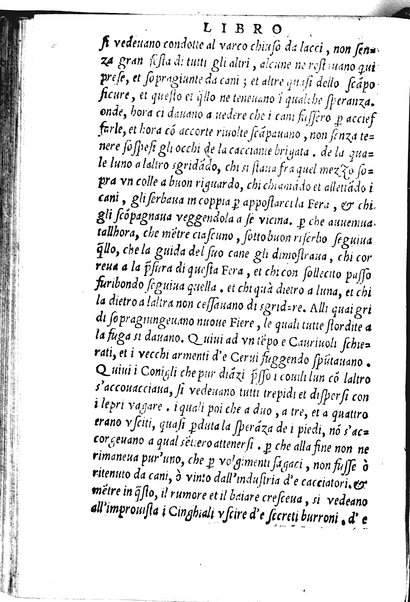 LIBRO
ſi vedeuano condotte al varco chiuſo da lacci, non ſen⸗
za gran feſta di tutti gli altri, alcune ne reſtauano qui
preſe, et ſopragiunte da cani; et altre quaſi dello ſcāpo
ſicure, et queſto et q̄llo ne teneuano ī qualche ſperanza.
onde, hora ci dauano a uedere che i cani fuſſero ꝑ accieſ
farle, et hora cō accorte riuolte ſcāpauano, non ſenza te⸗
nere ſoſpeſi gli occhi de la cacciante brigata. de la qua⸗
le luno a laltro sgridādo, chi ſi ſtaua fra quel mezzo ſo⸗
pra vn colle a buon riguardo, chi chiamādo et allettādo i
cani, gli ſerbaua in coppia ꝑ appoſtarci la Fera, & chi
gli ſcopagnaua veggendola a ſe vicina. ꝑ che auuenuа
tallhora, che mētre ciaſcuno, ſotto buon riſerbo ſeguiua
q̄llo, che la guida del ſuo cane gli dimoſtraua, chi cor⸗
reua a la p̄ſura di queſta Fera, et chi con ſollecito paſſo
furibondo ſeguiua quella. et chi quà dietro a luna, et chi
la dietro a laltra non ceſſauano di sgridare. Alli quai gri
di ſopragiungeuano nuoue Fiere, le quali tutte ſtordite a
la fuga ſi dauano. Quiui ad vn tēpo e Cauriuoli ſchie⸗
rati, et i vecchi armenti d'e Cerui fuggendo ſpūtauano.
Quiui i Conigli che pur diāzi p̄ſſo i couili lun cō laltro
s'accouacciaua, ſi vedeuano tutti trepidi et diſperſi con
i lepri vagare. i quali poi che a duo, a tre, et a quattro
erano vſciti, quaſi ꝑduta la ſperāza de i piedi, nō s'ac⸗
corgeuano a qual ſētiero attenerſi. ꝑ che alla fine non ne
rimaneua pur'uno, che ꝑ volgimenti ſagaci, non fuſſe ò
ritenuto da cani, ò vinto dall'induſtria d'e cacciatori. &
mētre in q̄ſto, il rumore et il baiare creſceua, ſi vedeano
all'improuiſta i Cinghiali vſcire d'e ſecreti burroni. d'e